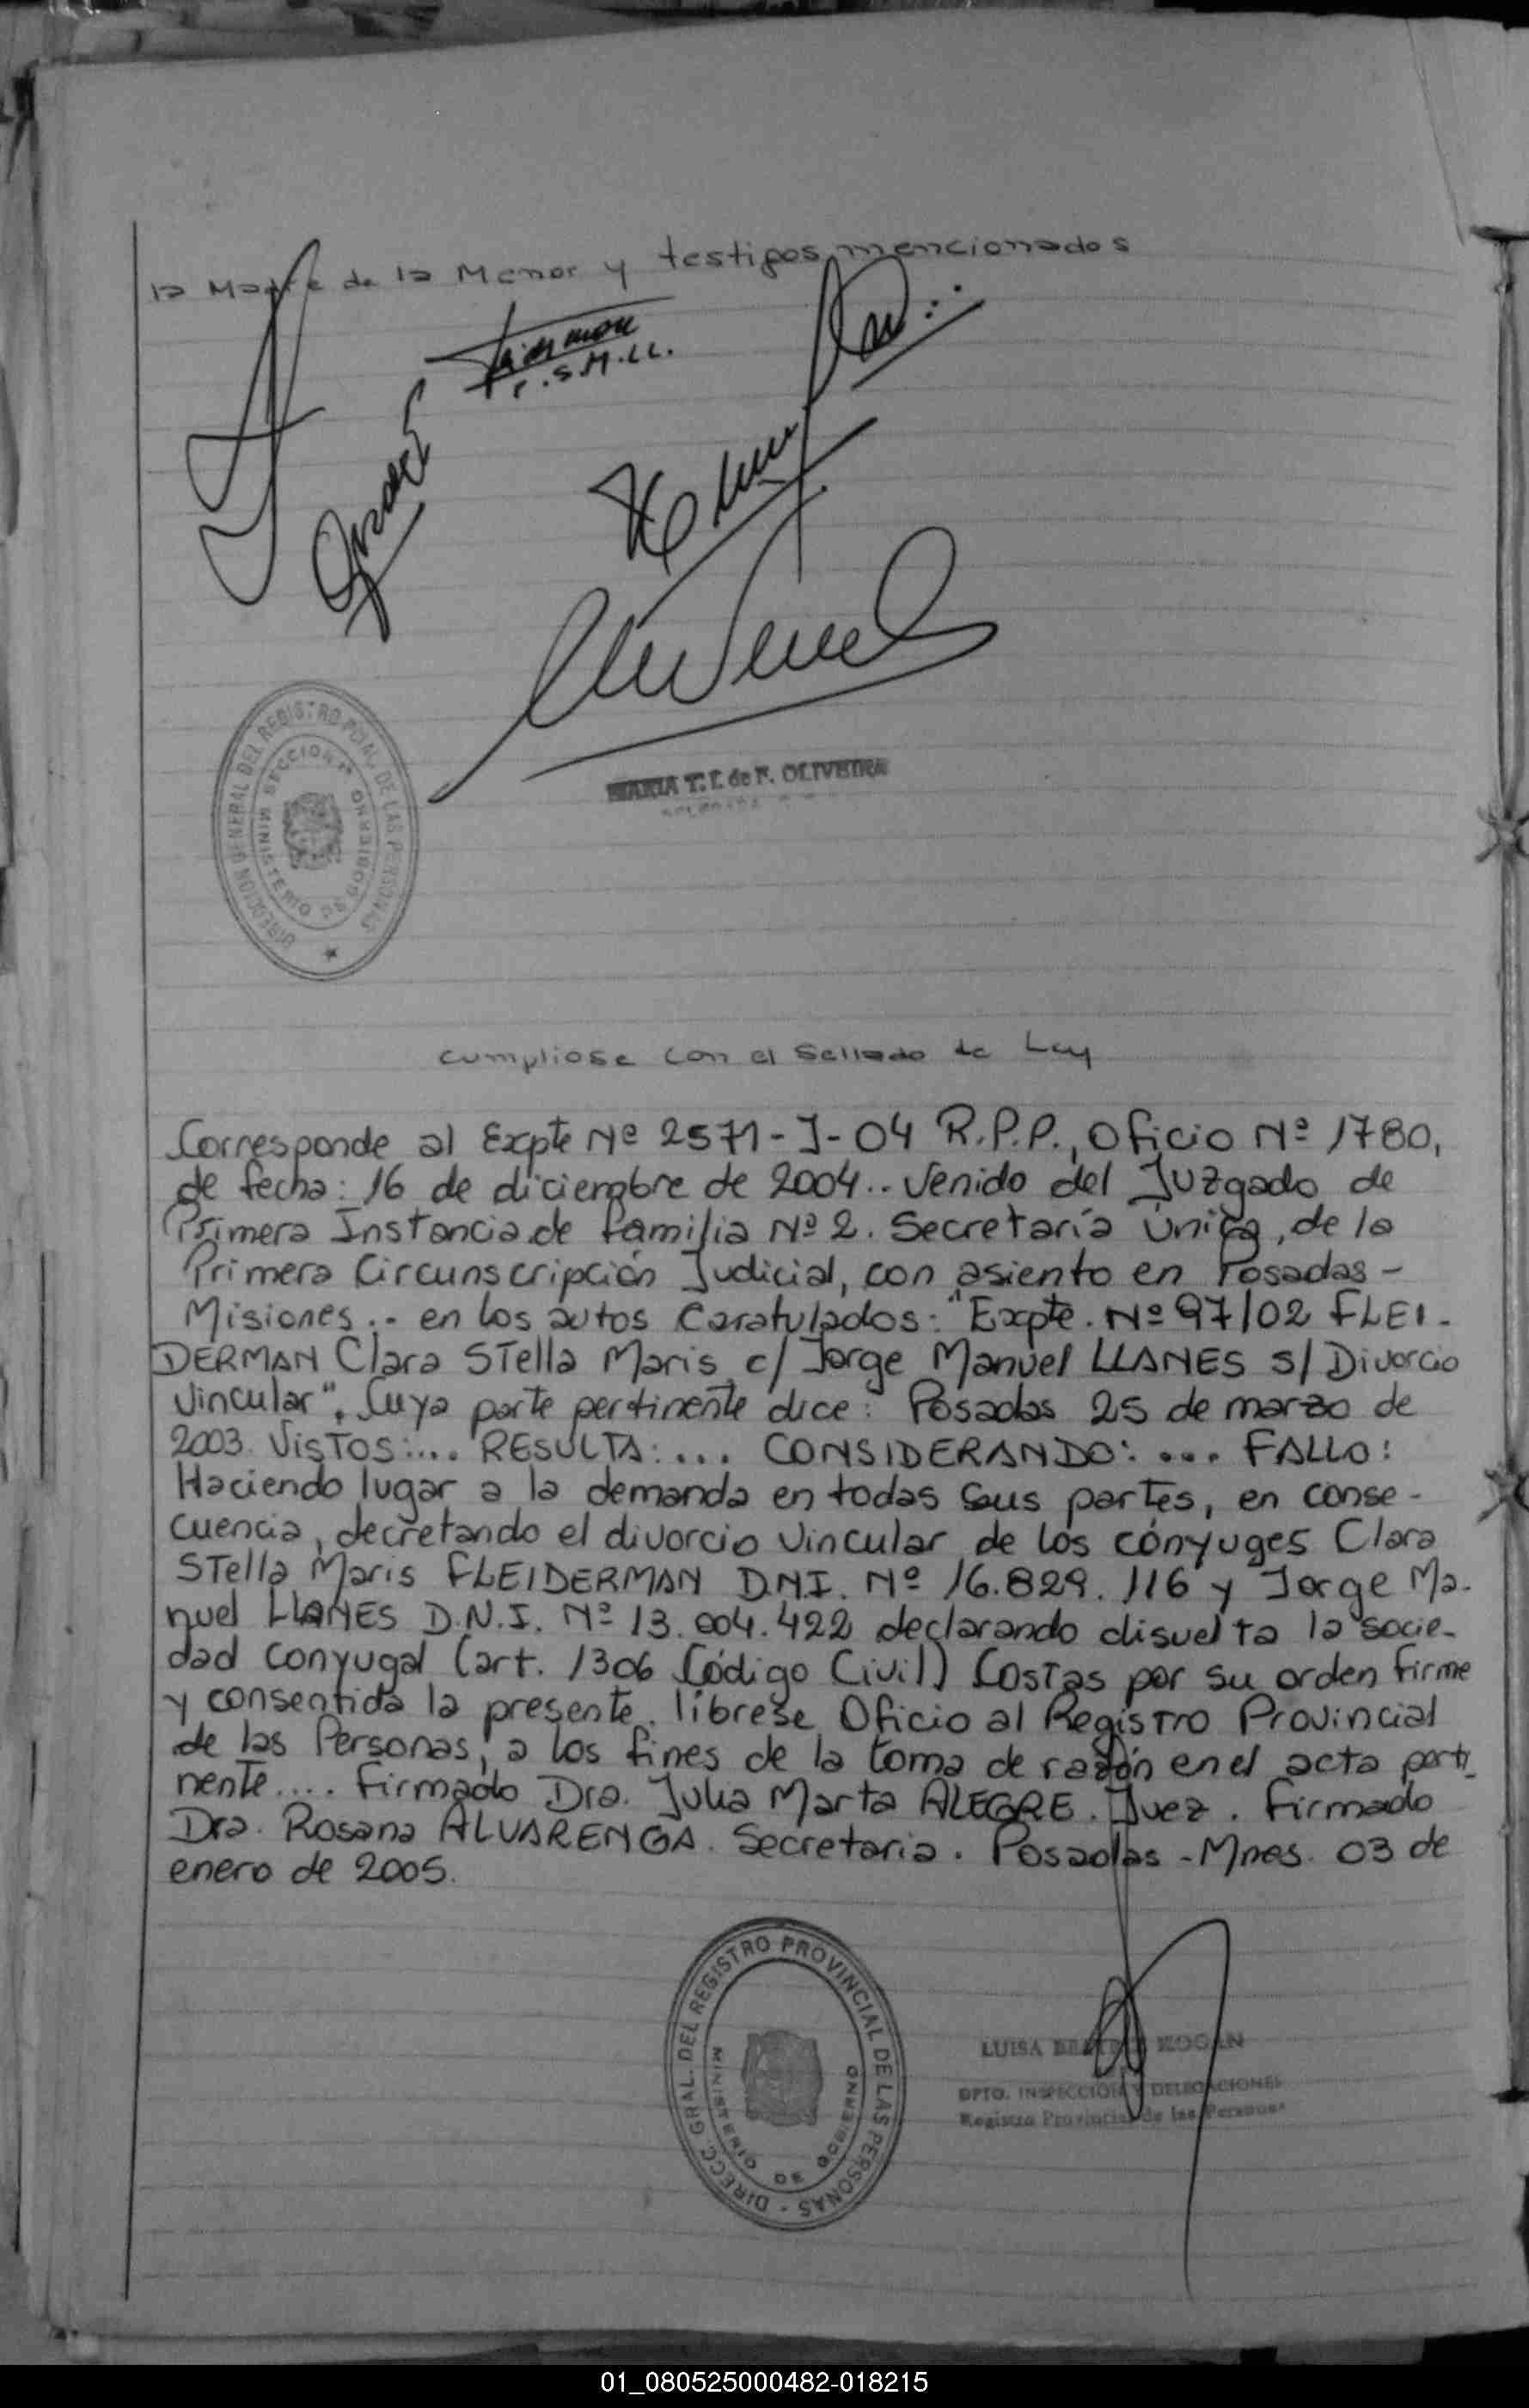 la Madre de la Menor y testigos mencionados
F.S.M.LL.
DIRECCION GENERAL DEL REGISTRO PCIAL. DE LAS PERSONAS
SECCION 1ª
MINISTERIO DE GOBIERNO
MARIA T. I. de F. OLIVEIRA
cumpliose con el Sellado de Ley
Corresponde al Expte Nº 2571-J-04 R.P.P., Oficio Nº 1780,
de fecha: 16 de diciembre de 2004.. venido del Juzgado de
Primera Instancia de familia Nº 2. Secretaría única, de la
Primera Circunscripción Judicial, con asiento en Posadas -
Misiones.- en los autos Caratulados: "Expte. Nº 97/02 FLEI-
DERMAN Clara STella Maris c/ Jorge Manuel LLANES s/ Divorcio
Vincular". Cuya parte pertinente dice: Posadas 25 de marzo de
2003. VISTOS:.... RESULTA:... CONSIDERANDO: ... FALLO:
Haciendo lugar a la demanda en todas sus partes, en conse-
cuencia, decretando el divorcio vincular de los cónyuges Clara
STella Maris FLEIDERMAN D.N.I. Nº 16.829.116 y Jorge Ma-
nuel LLANES D.N.I. Nº 13.004.422 declarando disuelta la socie-
dad conyugal (art. 1306 Código Civil) Costas por su orden firme
y consentida la presente. líbrese Oficio al Registro Provincial
de las Personas, a los fines de la toma de razón en el acta perti-
nente.... Firmado Dra. Julia Marta ALEGRE. Juez. Firmado
Dra. Rosana ALVARENGA. Secretaria. Posadas - Mnes. 03 de
enero de 2005.
DIRECC. GRAL. DEL REGISTRO PROVINCIAL DE LAS PERSONAS -
MINISTERIO DE GOBIERNO
LUISA BEATRIZ KOGAN
DPTO. INSPECCION Y DELEGACIONES
Registro Provincial de las Personas
01_080525000482-018215